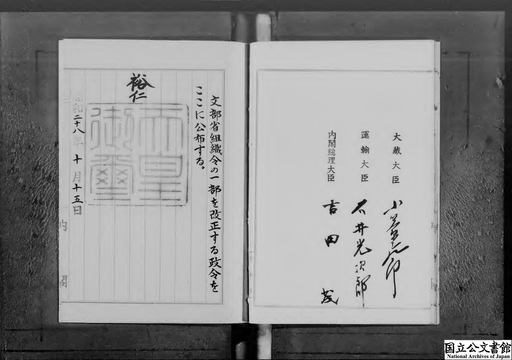 大蔵大臣
運輸大臣 石井光次郎
内閣総理大臣 吉田茂
文部省組織令の一部を改正する政令を
ここに公布する。
裕仁
天皇御璽
昭和二十八年十月十五日
内閣
国立公文書館
National Archives of Japan